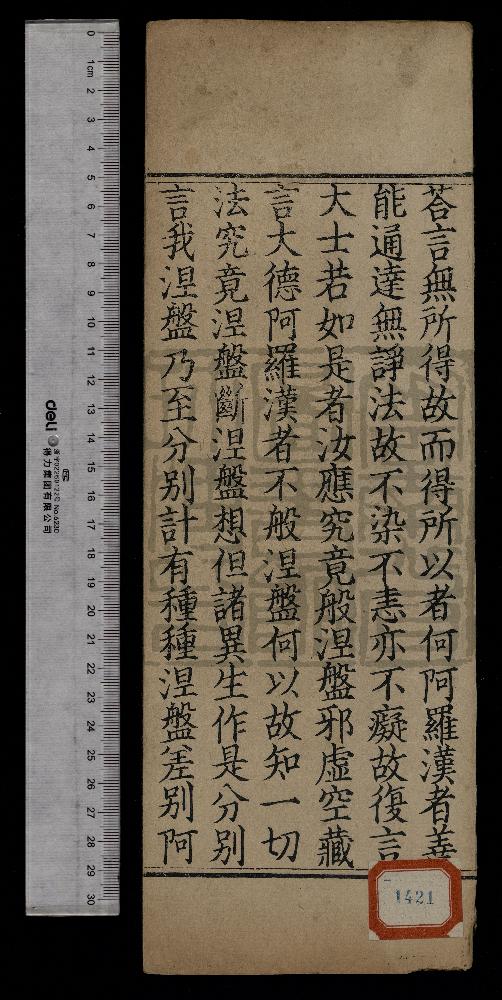 荅言無所得故而得所以者何阿羅漢者善
能通達無諍法故不染不恚亦不癡故復言
大士若如是者汝應究竟般涅盤邪虛空藏
言大德阿羅漢者不般涅盤何以故知一切
法究竟涅盤斷涅盤想但諸異生作是分别
言我涅盤乃至分别計有種種涅盤差别阿
1421
0 1cm 2 3 4 5 6 7 8 9 10 11 12 13 14 15 16 17 18 19 20 21 22 23 24 25 26 27 28 29 30
deli
得力集团有限公司